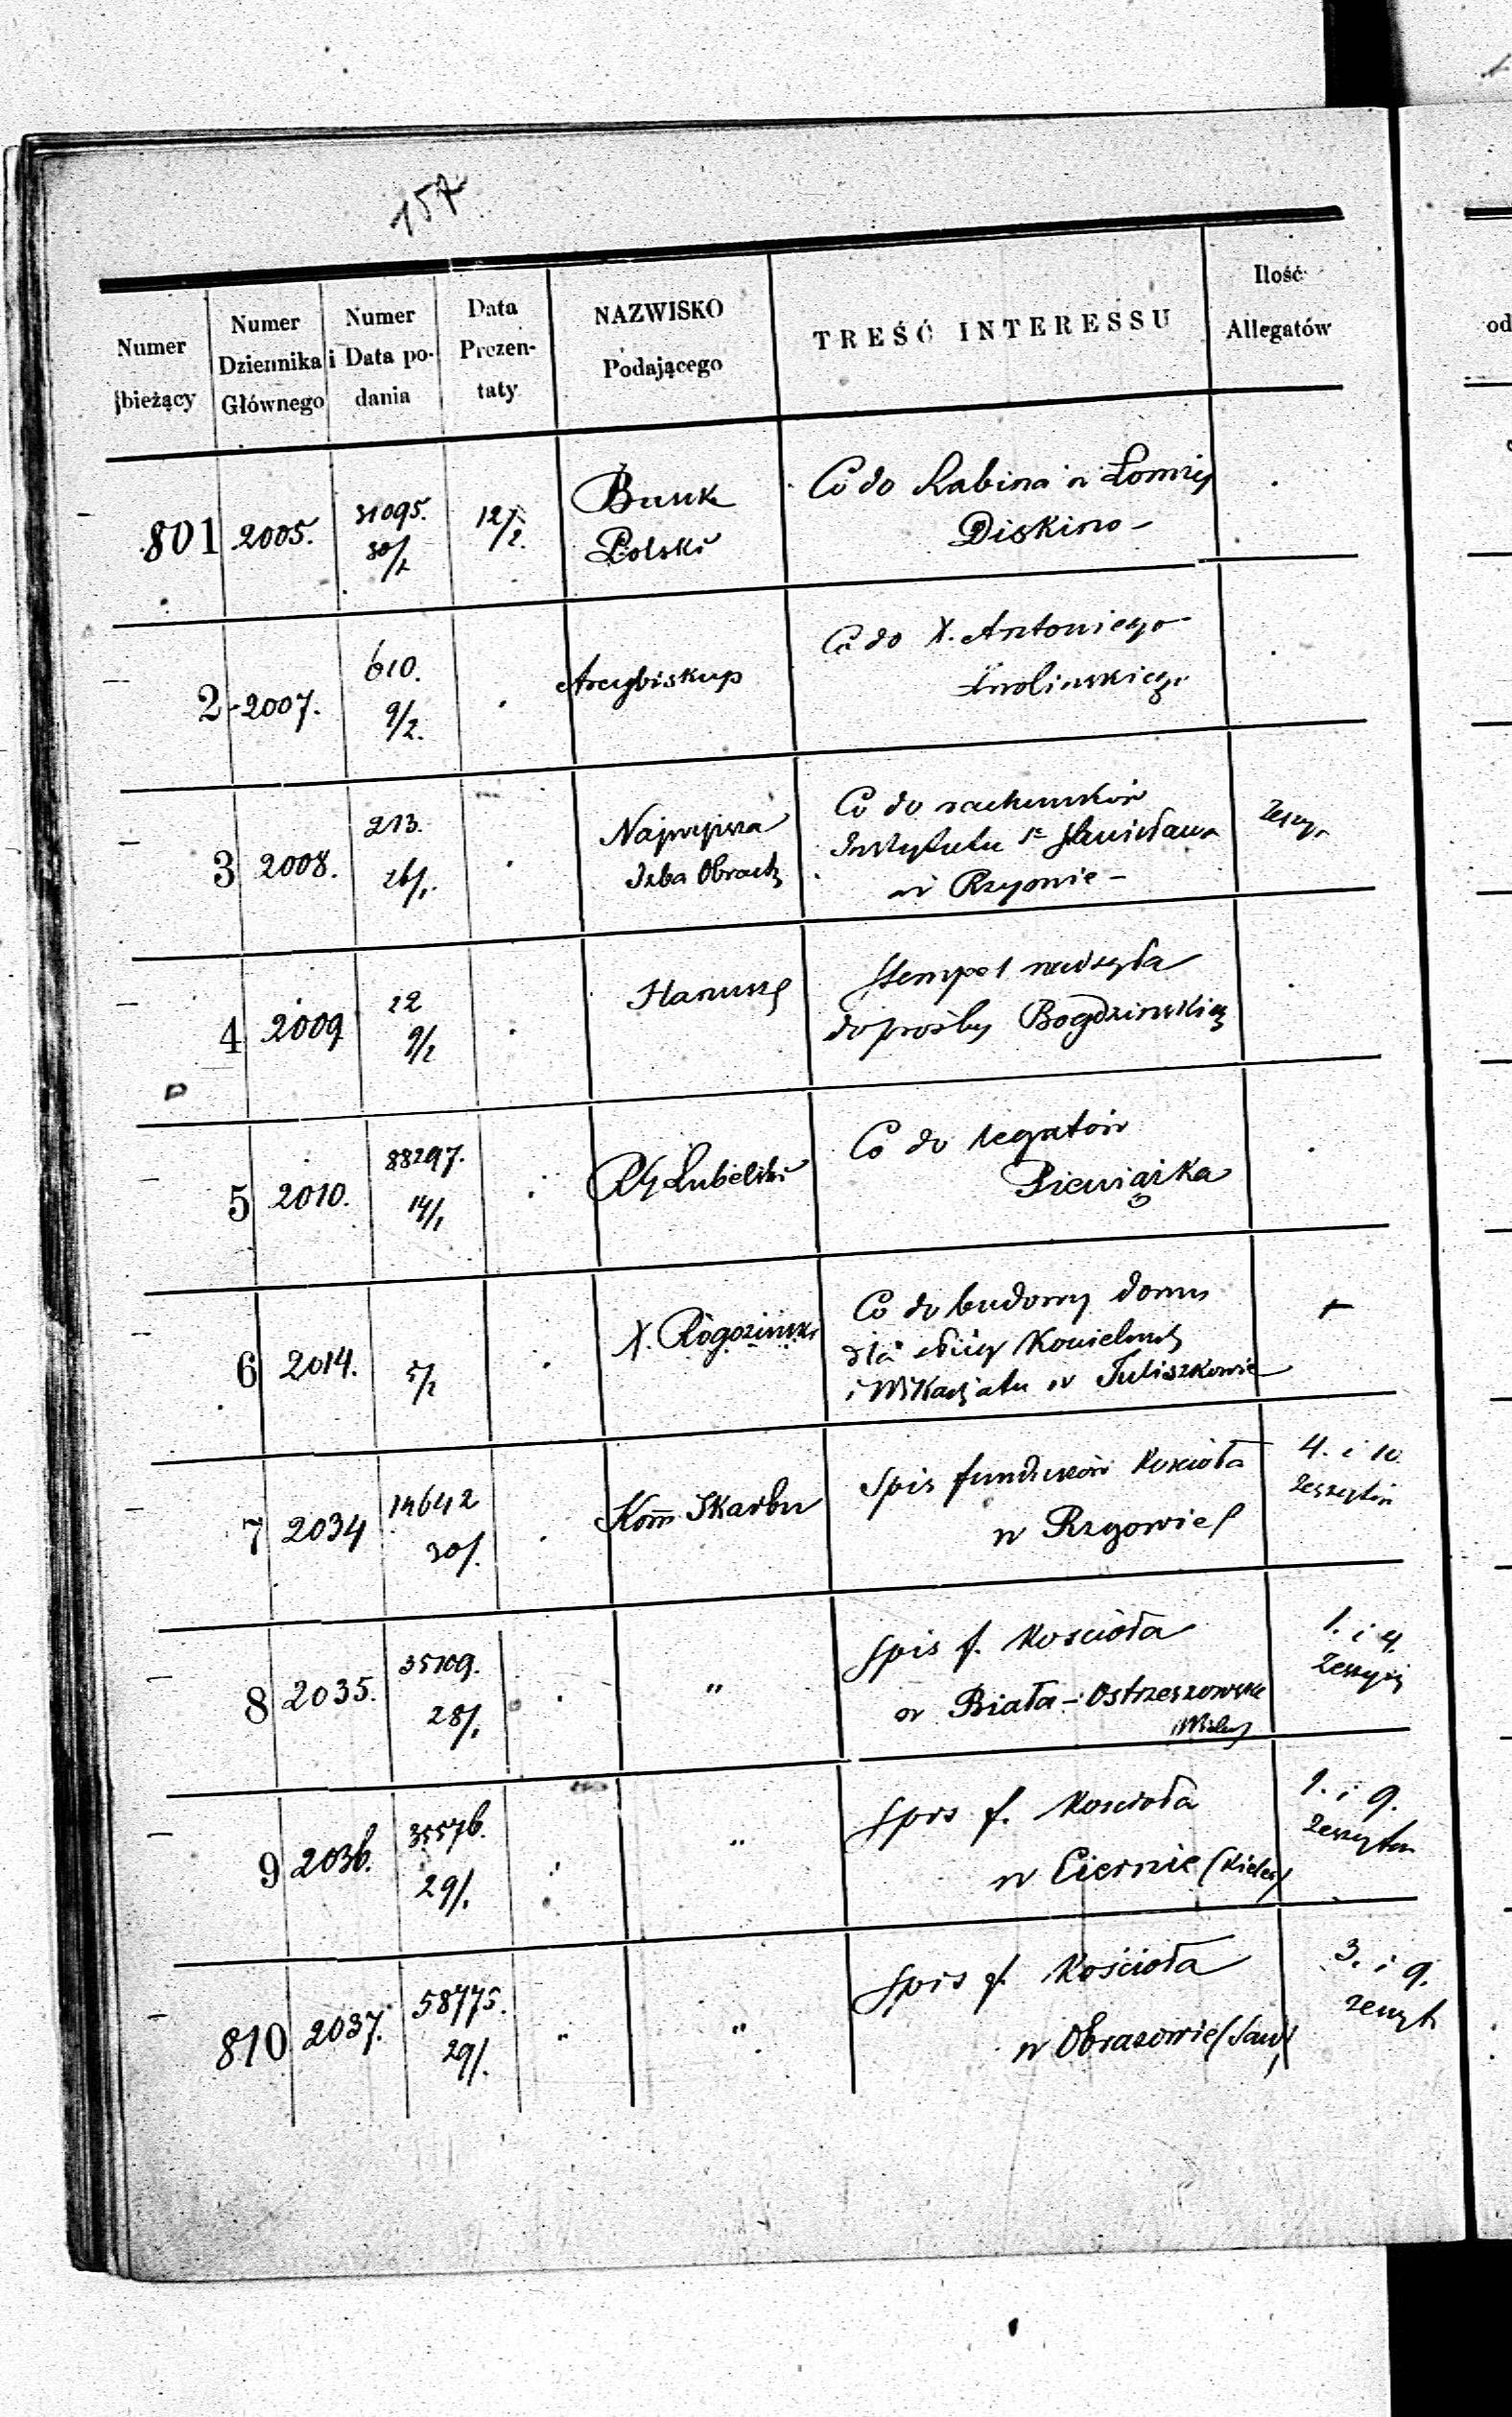 157
Numer bieżący
Numer Dziennika Głównego
Numer i Data podania
Data Prezentaty
NAZWISKO Podającego
TREŚĆ INTERESSU
Ilość Allegatów
801 2005. 31095. 12/2. Bank Co do Rabina w Łomży
Polski Diskino –
2 2007. 610. Arcybiskup Co do X. Antoniego
9/2.
3 2008. 213. Najwyższa Co do rachunków
26/1. Izba Obrach Instytutu St Stanisława
w Rzymie –
4 2009 12 Hanusz Stempel nadsyła
9/2 do prośby
5 2010. 88297. RG Lubelski Co do legatów
14/1 Pieniążka
6 2014. X. Rogoziński Co do budowy domu
5/2 dla służy Kościelnej
i Wikarjatu w Tuliszkowie
7 2034 14642 Kom Skarbu Spis funduszów Kościoła 4. i 10.
30/1. w Rzgowie zeszytów
8 2035. 35109. " Spis f. Kościoła 1. i 4.
28/1. w Biała-Ostrzeszowska
9 2036. 35576. " Spis f. Kościoła 1. i 9.
29/1. w Ciernie (Kielec) zeszytów
810 2037. 58775. " " Spis f. Kościoła 3. i 9.
29/1. w Obrazowie (San) zeszyt